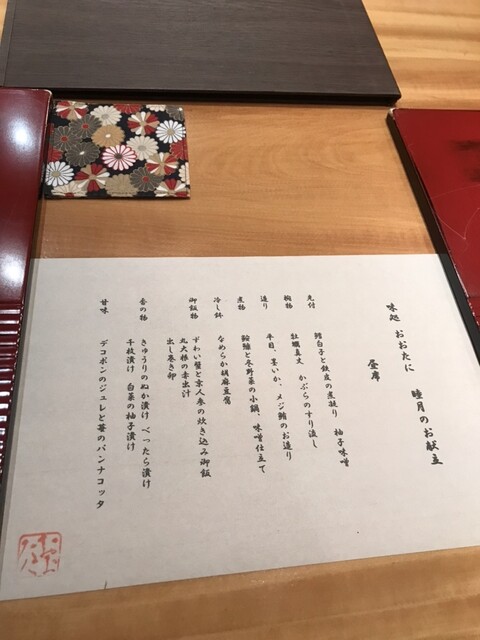 味処 おおたに 睦月のお献立
昼席
先付 鱈白子と鉄皮の煮凝り 柚子味噌
椀物 牡蠣真丈 かぶらのすり流し
造り 平目、墨いか、メジ鮪のお造り
煮物 鮟鱇と冬野菜の小鍋 味噌仕立て
冷し鉢 なめらか胡麻豆腐
御飯物 ずわい蟹と京人参の炊き込み御飯
丸大根の赤出汁
出し巻き卵
香の物 きゅうりのぬか漬け べったら漬け
千枚漬け 白菜の柚子漬け
甘味 デコポンのジュレと苺のパンナコッタ